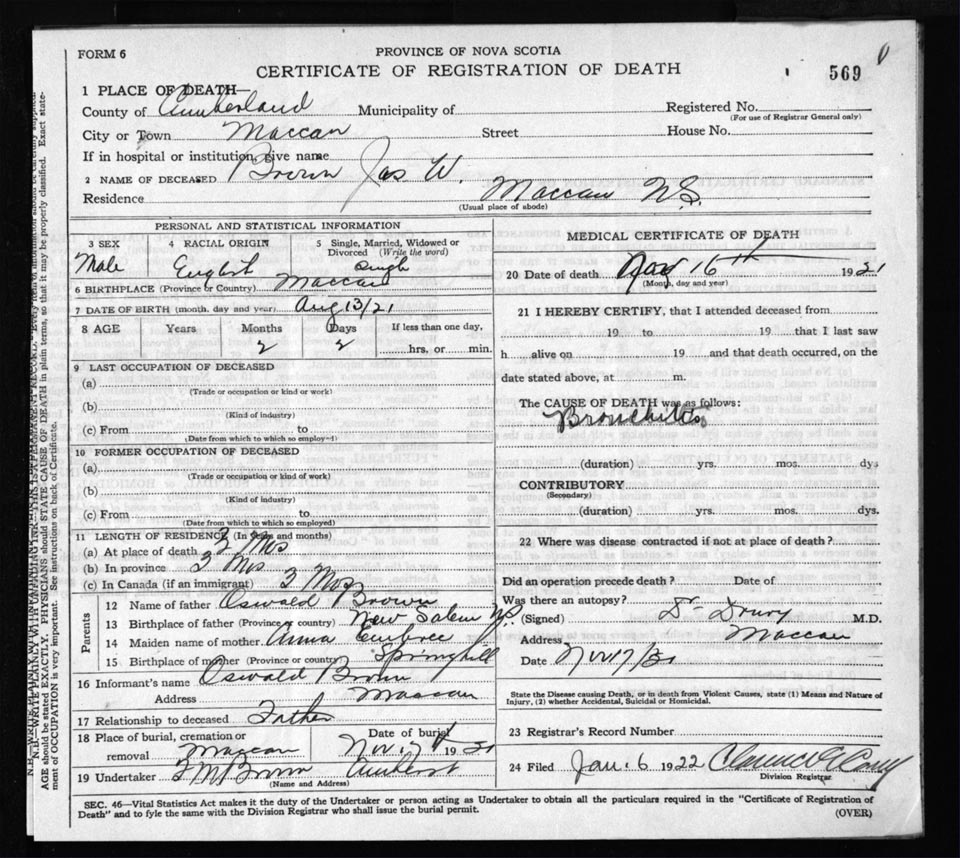 FORM 6
PROVINCE OF NOVA SCOTIA
CERTIFICATE OF REGISTRATION OF DEATH
569
1 PLACE OF DEATH
County of Cumberland Municipality of Registered No.
(For use of Registrar General only)
City or Town Maccan Street House No.
If in hospital or institution, give name
2 NAME OF DECEASED Brown Jas W.
Residence Maccan N.S.
(Usual place of abode)
PERSONAL AND STATISTICAL INFORMATION
3 SEX Male
4 RACIAL ORIGIN English
5 Single, Married, Widowed or Divorced (Write the word) Single
6 BIRTHPLACE (Province or Country) Maccan
7 DATE OF BIRTH (month, day and year) Aug 13/21
8 AGE Years Months Days If less than one day,
2 2 hrs. or min.
9 LAST OCCUPATION OF DECEASED
(a)
(Trade or occupation or kind or work)
(b)
(Kind of industry)
(c) From to
(Date from which to which so employ-d)
10 FORMER OCCUPATION OF DECEASED
(a)
(Trade or occupation or kind of work)
(b)
(Kind of industry)
(c) From to
(Date from which to which so employed)
11 LENGTH OF RESIDENCE (In years and months)
(a) At place of death 3 Mos
(b) In province 3 Mos
(c) In Canada (if an immigrant) 3 Mos
Parents
12 Name of father Oswald Brown
13 Birthplace of father (Province or country) New Salem N.S.
14 Maiden name of mother Anna Embree
15 Birthplace of mother (Province or country) Springhill
16 Informant's name Oswald Brown
Address Maccan
17 Relationship to deceased Father
18 Place of burial, cremation or Date of burial
removal Maccan Nov 17 1921
19 Undertaker Brown Amherst
(Name and Address)
MEDICAL CERTIFICATE OF DEATH
20 Date of death Nov 16th 1921
(Month, day and year)
21 I HEREBY CERTIFY, that I attended deceased from
19 to 19 that I last saw
h alive on 19 and that death occurred, on the
date stated above, at m.
The CAUSE OF DEATH was as follows:
Bronchitis
(duration) yrs. mos. dys
CONTRIBUTORY
(Secondary)
(duration) yrs. mos. dys.
22 Where was disease contracted if not at place of death?
Did an operation precede death? Date of
Was there an autopsy?
(Signed) Dr Drury M.D.
Address Maccan
Date Nov 17/21
State the Disease causing Death, or in death from Violent Causes, state (1) Means and Nature of
Injury, (2) whether Accidental, Suicidal or Homicidal.
23 Registrar's Record Number
24 Filed Jan. 6 1922
Division Registrar
SEC. 46—Vital Statistics Act makes it the duty of the Undertaker or person acting as Undertaker to obtain all the particulars required in the "Certificate of Registration of
Death" and to fyle the same with the Division Registrar who shall issue the burial permit.
(OVER)
AGE should be stated EXACTLY. PHYSICIANS should STATE CAUSE OF DEATH in plain terms, so that it may be properly classified. Exact state-
ment of OCCUPATION is very important. See instructions on back of Certificate.